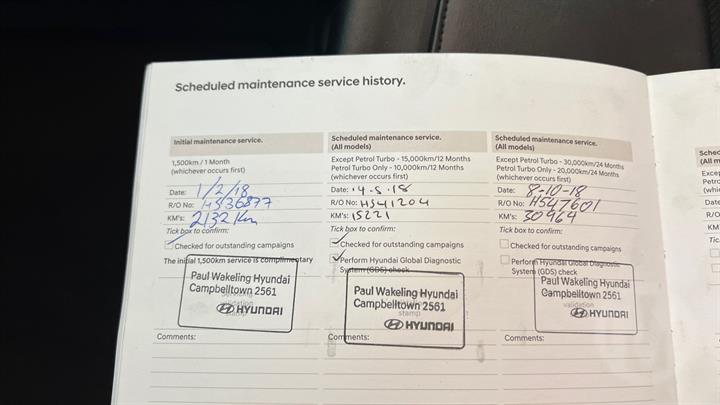 Scheduled maintenance service history.
Initial maintenance service.
1,500km / 1 Month
(whichever occurs first)
Date: 1/2/18
R/O No: H536877
KM's: 2132 Km
Tick box to confirm:
Checked for outstanding campaigns
The initial 1,500km service is complimentary
Paul Wakeling Hyundai
Campbelltown 2561
HYUNDAI
Comments:
Scheduled maintenance service.
(All models)
Except Petrol Turbo - 15,000km/12 Months
Petrol Turbo Only - 10,000km/12 Months
(whichever occurs first)
Date: 14.5.18
R/O No: H541204
KM's: 15221
Tick box to confirm:
Checked for outstanding campaigns
Perform Hyundai Global Diagnostic
System (GDS) check
Paul Wakeling Hyundai
Campbelltown 2561
stamp
HYUNDAI
Comments:
Scheduled maintenance service.
(All models)
Except Petrol Turbo - 30,000km/24 Months
Petrol Turbo Only - 20,000km/24 Months
(whichever occurs first)
Date: 8-10-18
R/O No: H547601
KM's: 30964
Tick box to confirm:
Checked for outstanding campaigns
Perform Hyundai Global Diagnostic
System (GDS) check
Paul Wakeling Hyundai
Campbelltown 2561
validation
HYUNDAI
Comments:
(All m
Petro
Date
R/O
KM
Tic